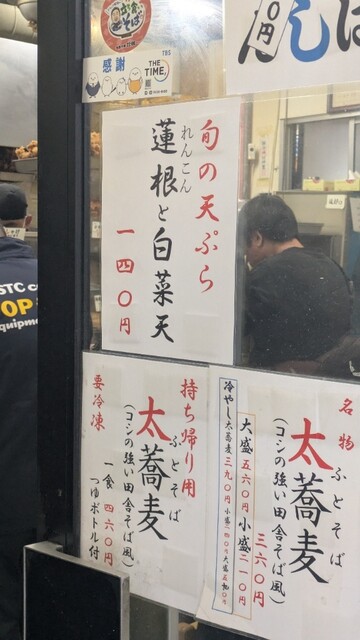 感謝
TBS
THE TIME,
旬の天ぷら
れんこん
蓮根と白菜天
一四〇円
持ち帰り用
ふとそば
太蕎麦
(コシの強い田舎そば風)
一食 四六〇円
つゆボトル付
要冷凍
名物
ふとそば
太蕎麦
(コシの強い田舎そば風)
三六〇円
大盛 五六〇円 小盛 二一〇円
冷やし太蕎麦 三九〇円
STC
OP
equipme